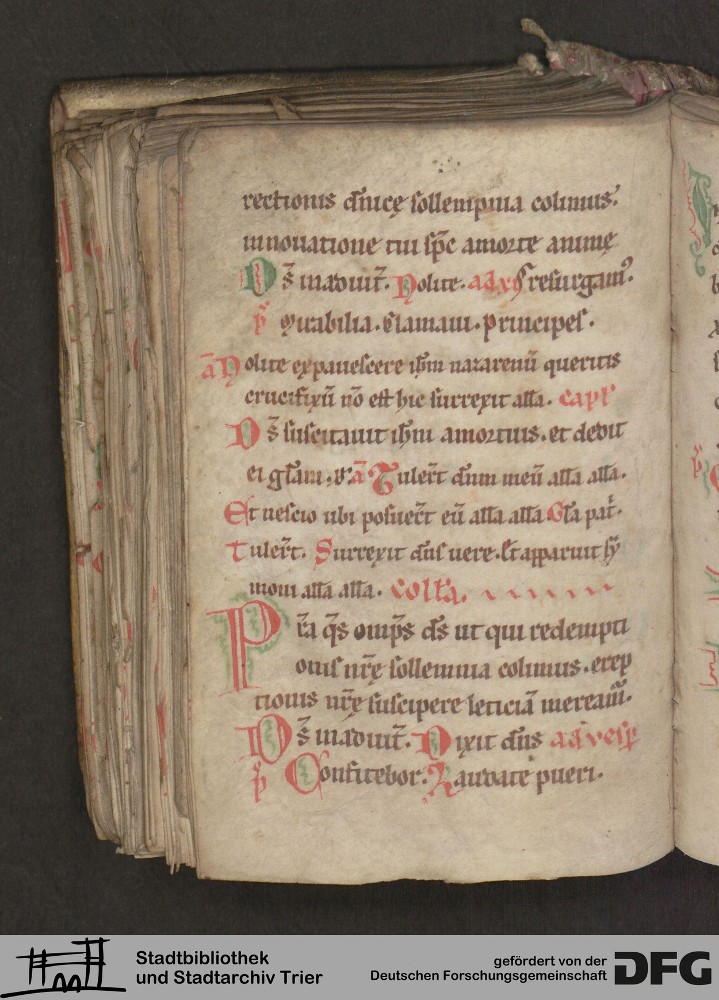 rectionis dn̄icę sollempnia colimus.
innouatione tui sp̄c amorte animę
D s̄ inadiuit̄. Nolite. ad xp̄ resurgam᷒.
p̄ Mirabilia. Clamaui. Principes.
a̅ Nolite expauescere ihm̄ nazarenū queritis
crucifixū nō est hic surrexit alła. capł
D s̄ suscitauit ihm̄ amortuis. et dedit
ei głam. v̄. a̅ Tuler̄t dn̄m meū alła alła.
Et nescio ubi posuer̄t eū alła alła Gła pat̄.
Tuler̄t. Surrexit dn̄s uere. Et apparuit sy
moni alła alła. Coll̄a.
P r̄a q̄s omp̄s d̄s ut qui redempti
onis nr̄ę sollemnia colimus. erep
tionis nr̄ę suscipere leticiā meream᷒.
D s̄ inadiuit̄. Dixit dn̄s ad vesp̄
p̄ Confitebor. Laudate pueri.
Stadtbibliothek
und Stadtarchiv Trier
gefördert von der
Deutschen Forschungsgemeinschaft DFG